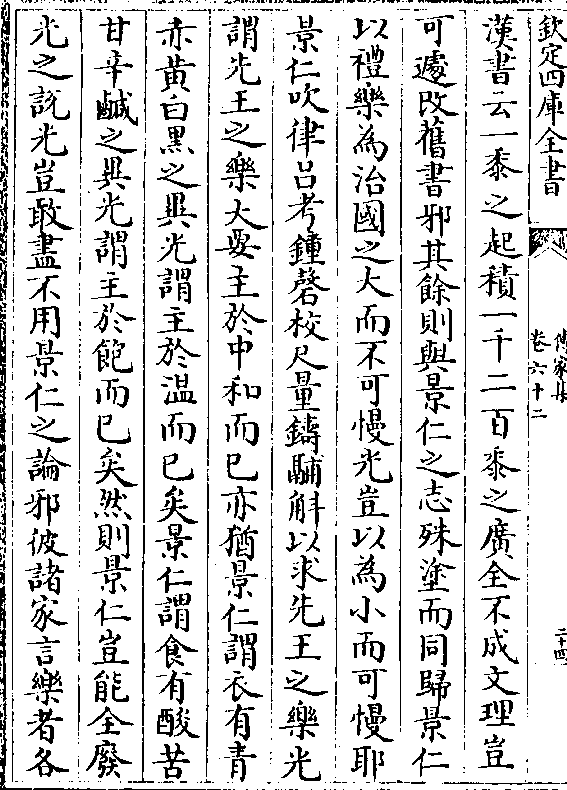 欽定四庫全書
傳家集
卷六十二
二十四
漢書云一黍之起積一千二百黍之廣全不成文理豈
可遽改舊書邪其餘則與景仁之志殊塗而同歸景仁
以禮樂為治國之大而不可慢光豈以為小而可慢耶
景仁吹律吕考鍾磬校尺量鑄鬴斛以求先王之樂光
謂先王之樂大要主於中和而已亦猶景仁謂衣有青
赤黄白黑之異光謂主於温而已矣景仁謂食有酸苦
甘辛鹹之異光謂主於飽而已矣然則景仁豈能全廢
光之説光豈敢盡不用景仁之論邪彼諸家言樂者各